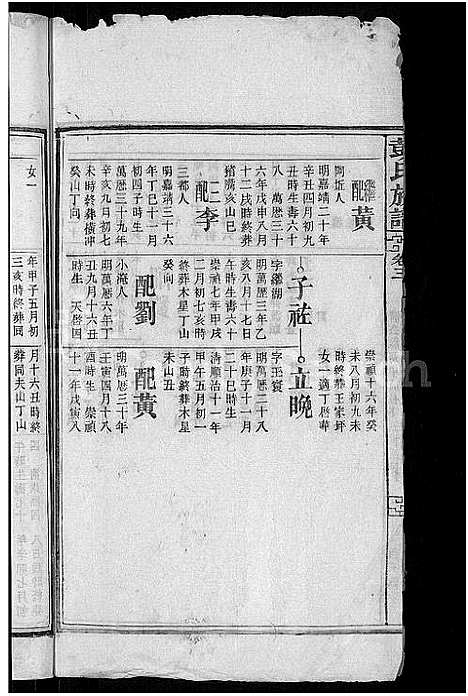 彭氏族譜
卷三
繼配黃
阿垢人
明嘉靖二十年
辛丑四月初九
丑時生壽六十
八 萬厯三十
六年戊申八月
十二戌時終葬
猪㵎亥山巳
三配李
三都人
明嘉靖三十六
年丁巳十一月
初四子時生
萬厯三十九年
辛亥九月初三
未時終葬橫冲
癸山丁向
女一
子祥
字繼湖
明萬厯三年乙
亥八月十七日
亥時生壽六十
崇禎七年甲戌
二月初七亥時
終葬木星丁山
癸向
配劉
小淹人
明萬厯六年丁
丑九月十六丑
時生 天啓四
年甲子五月初
三亥時終葬同
崇禎十六年癸
未八月初九未
時終葬王家坪
女一適丁厯華
立晚
字玉寰
明萬厯二十八
年庚子十一月
二十巳時生
清順治十一年
甲午五月初一
子時終葬木星
未山丑
配黃
明萬厯三十年
壬寅四月十八
酉時生 崇禎
十一年戊寅八
月十六丑時終
葬同夫山丁山